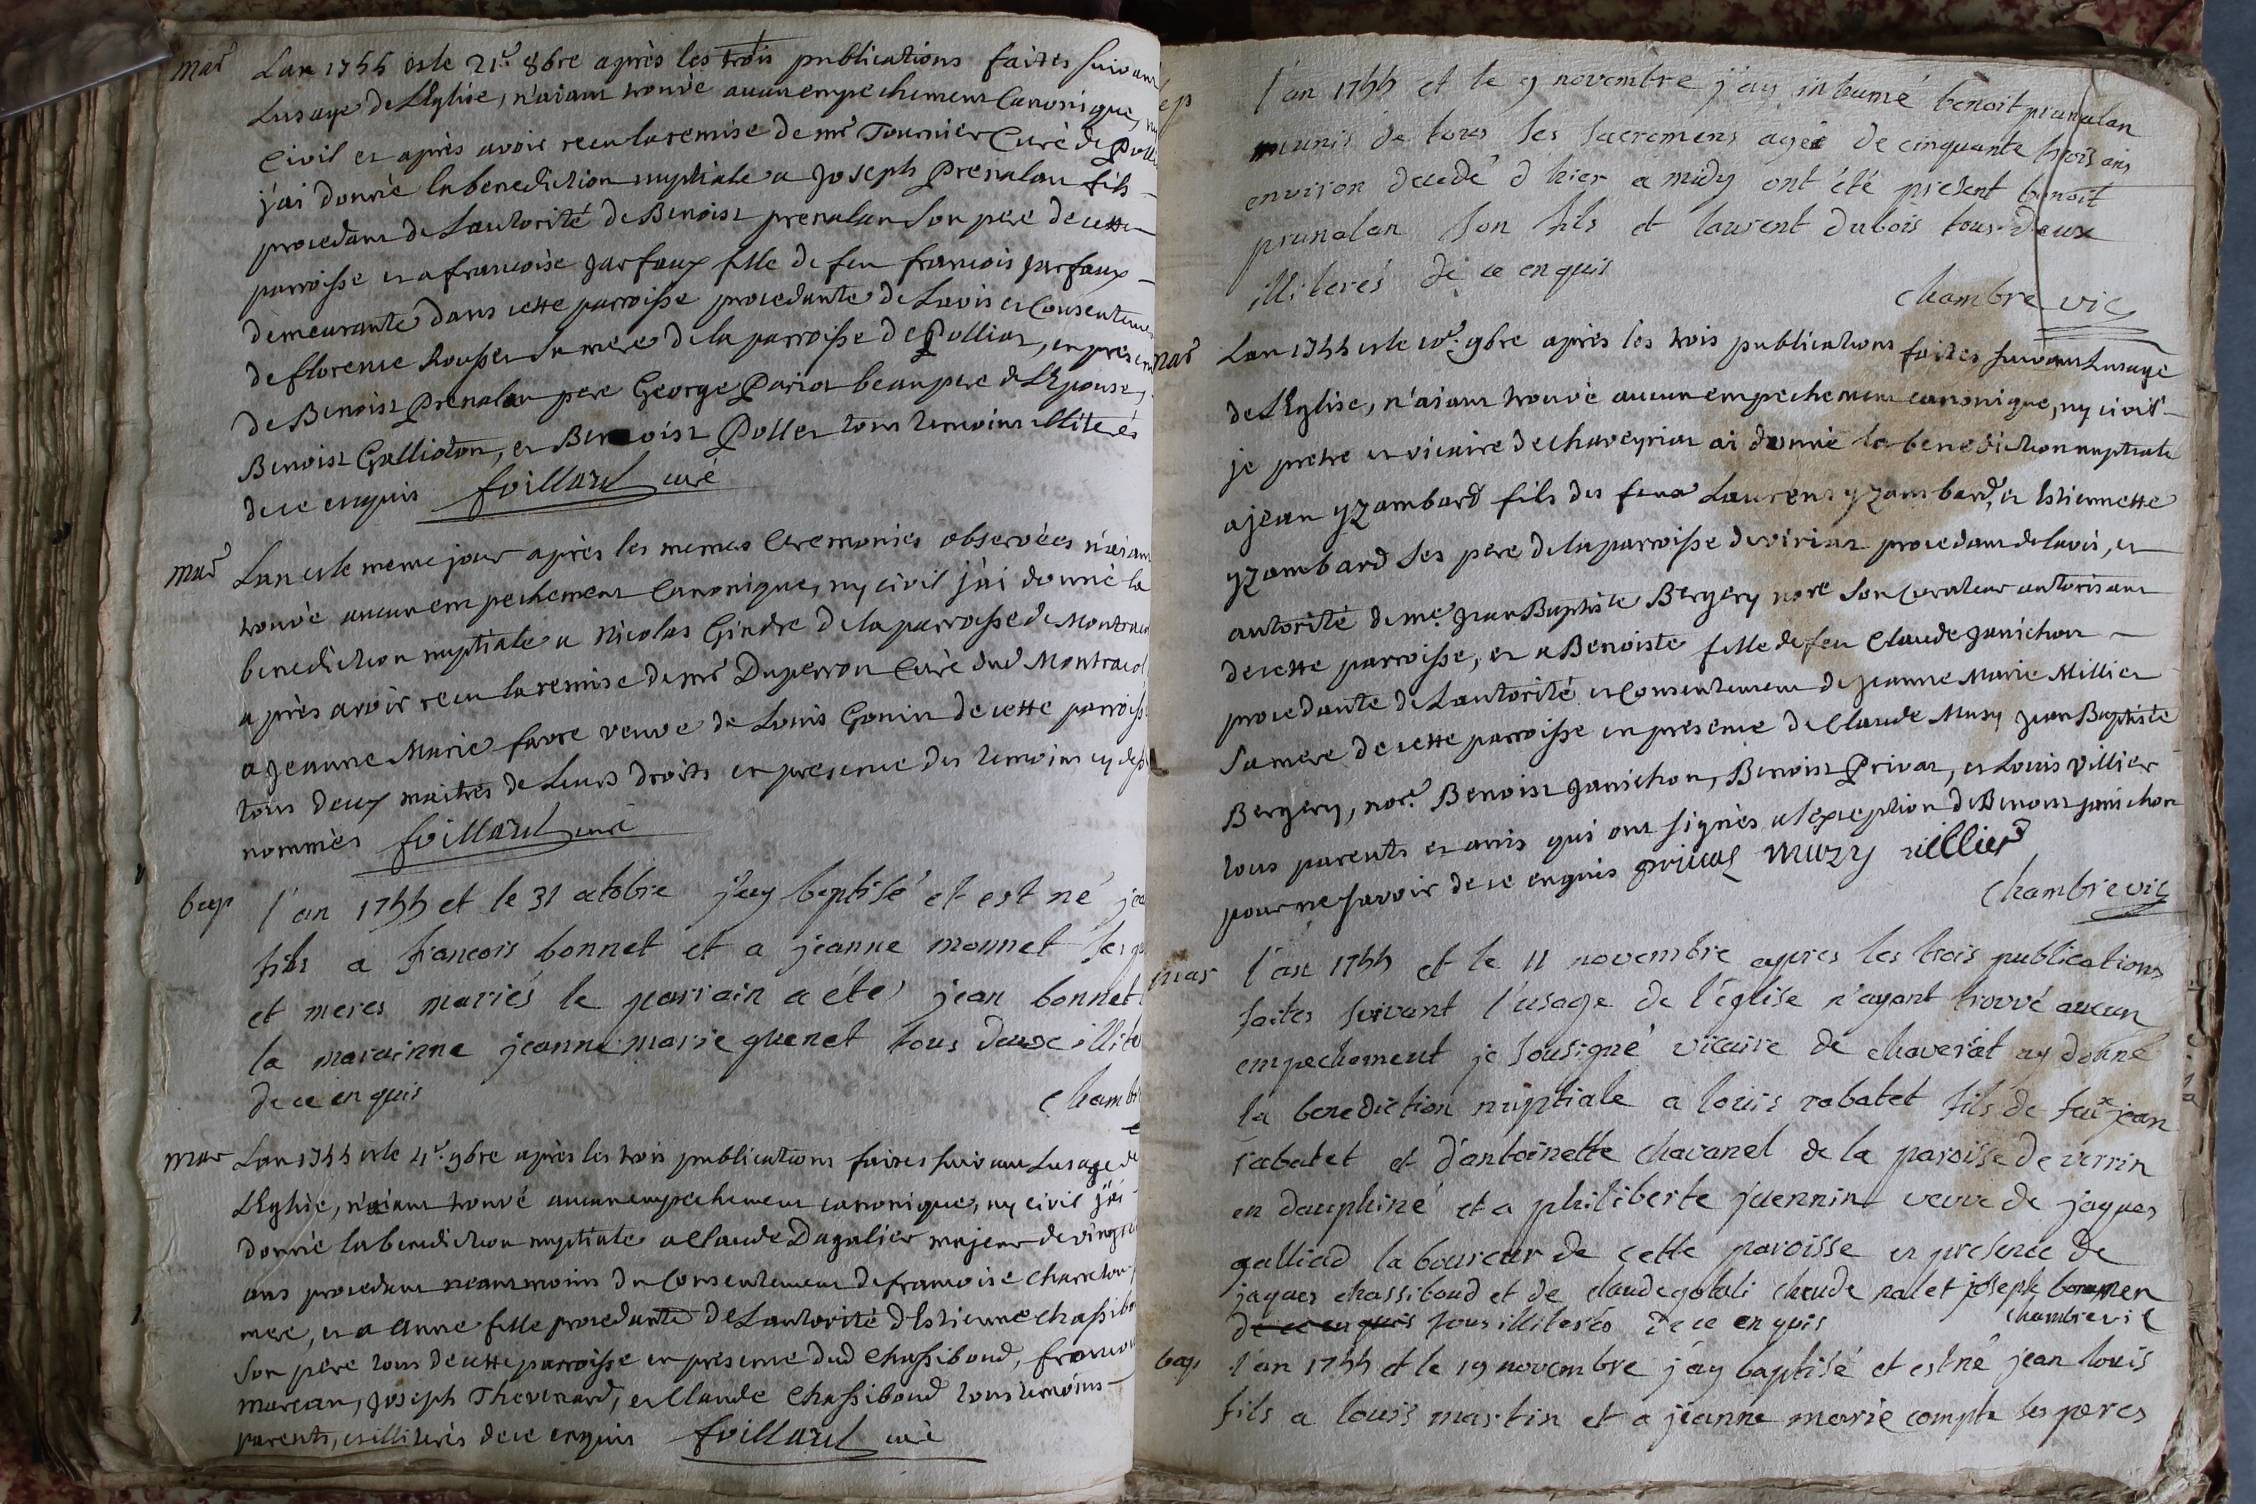 mar
Lan 1755 et le 21e 8bre après les trois publications faites suivant
Lusage de L'Eglise, n'aiant trouvé aucun empechement Canonique, ny
Civil et après avoir recu la remise de mr Tournier Curé de Polliat
j'ai donné la benediction nuptiale a Joseph Prenalan fils
procedant de L'autorité de Benoist prenalan Son pere de cette
parroisse et a francoise jarfaux fille de feu francois jarfaux
demeurante dans cette parroisse procedante de L'avis et Consentement
de florence Rousset Sa mere de la parroisse de Polliat, en presence
de Benoist Prenalan pere George Pariot beau pere de L'Epouse,
Benoist Galliodon, et Benoist Pollet tous temoins illiterés
de ce enquis foillard curé
mar
Lan et le meme jour après les memes Ceremonies observées n'aiant
trouvé aucun empechement Canonique, ny civil j'ai donné la
benediction nuptiale a Nicolas Gindre de la parroisse de Montracol
après avoir recu la remise de mr Duperron Curé dud Montracol
a Jeanne Marie favre veuve de Louis Gonin de cette parroisse
tous deux maitres de Leurs droits en presence des temoins cy dessus
nommés foillard curé
bap
l'an 1755 et le 31 octobre j'ay baptisé et est né
fils a francois bonnet et a jeanne monnet ses
et meres mariés le parrain a été jean bonnet
la marainne jeanne marie guenet tous deux
de ce enquis
Chambre
mar
Lan 1755 et le 4e 9bre après les trois publications faites suivant Lusage de
L'Eglise, n'aiant trouvé aucun empechement canonique, ny civil j'ai
donné la benediction nuptiale a Claude Dagalier majeur de vingt
ans procedant neantmoins du Consentement de francoise Charreton
mere, et a Anne fille procedante de L'autorité d'Estienne chassiboud
Son pere tous de cette parroisse en presence dud Chassiboud, francois
marean, Joseph Thevenard, et Claude Chassiboud tous temoins
parents, et illiterés de ce enquis foillard curé
l'an 1755 et le 9 novembre j'ay inhumé benoit prunalan
munis de tous les sacremens agée de cinquante trois ans
environ decedé d'hier a midy ont été present benoit
prunalan son fils et laurent dubois tous deux
illiterés de ce enquis
chambre vic
mar
Lan 1755 et le 10e 9bre après les trois publications faites suivant Lusage
de L'Eglise, n'aiant trouvé aucun empechement canonique, ny civil
je pretre et vicaire de chaveyriat ai donné la benediction nuptiale
a jean yzambard fils des feux Laurens yzambard, et Estiennette
yzambard ses pere de la parroisse de viriat procedant de l'avis, et
autorité de me Jean Baptiste Bergery nore Son Curateur autorisant
de cette parroisse, et a Benoiste fille de feu Claude Janichon
procedante de L'autorité et Consentement de Jeanne Marie Millier
Sa mere de cette parroisse en presence de Claude Musy Jean Baptiste
Bergery, nore Benoist Janichon, Benoist Privat, et Louis villier
tous parents et amis qui ont signés a l'exception de Benoist janichon
pour ne savoir de ce enquis privat Muzy villier
chambre vic
mar
l'an 1755 et le 11 novembre apres les trois publications
faites suivant l'usage de l'église n'ayant trouvé aucun
empechement je sousigné vicaire de chaverat ay donné
la benediction nuptiale a louis rabatet fils de feux jean
rabatet et d'antoinette chavanel de la paroisse de verrin
en dauphiné et a philiberte jaennin veuve de jaques
galliad laboureur de cette paroisse en presence de
jaques chassiboud et de claude gotali claude nalet joseph
de ce enquis tous illiterés de ce enquis chambre vic
bap
l'an 1755 et le 19 novembre j'ay baptisé et est né jean louis
fils a louis martin et a jeanne marie compte ses peres